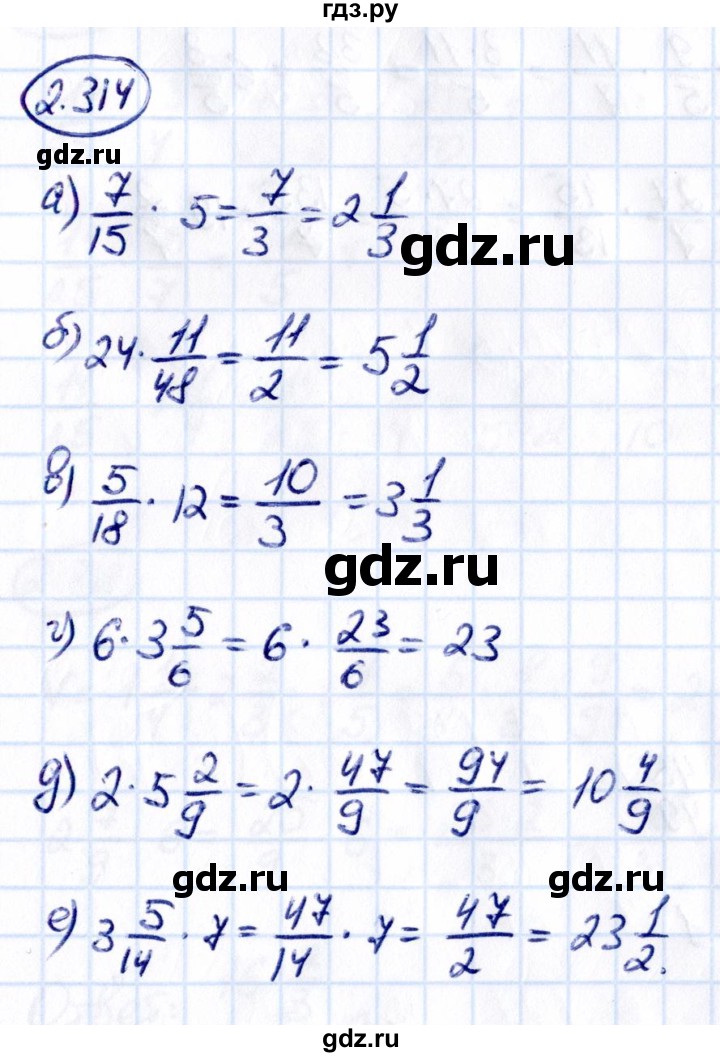 гдз.ру
2.314
gdz.ru
а) 7/15 · 5 = 7/3 = 2 1/3
gdz.ru
б) 24 · 11/48 = 11/2 = 5 1/2
в) 5/18 · 12 = 10/3 = 3 1/3
gdz.ru
г) 6 · 3 5/6 = 6 · 23/6 = 23
д) 2 · 5 2/9 = 2 · 47/9 = 94/9 = 10 4/9
gdz.ru gdz.ru
е) 3 5/14 · 7 = 47/14 · 7 = 47/2 = 23 1/2.
gdz.ru